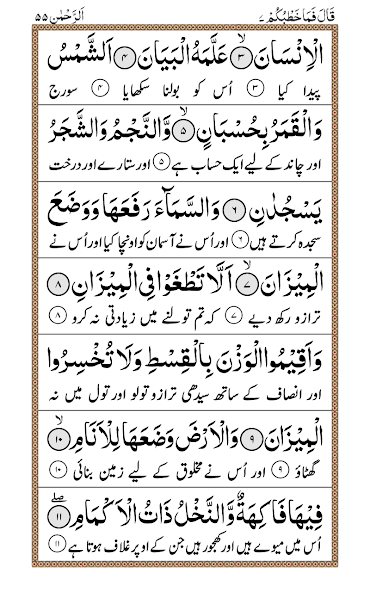 قَالَ فَمَا خَطْبُكُمْ ۲۷ اَلرَّحْمٰن ۵۵
الْاِنْسَانَ ۙ﴿۳﴾ عَلَّمَهُ الْبَيَانَ ﴿۴﴾ اَلشَّمْسُ
پیدا کیا ﴿۳﴾ اُس کو بولنا سکھایا ﴿۴﴾ سورج
وَالْقَمَرُ بِحُسْبَانٍ ۙ﴿۵﴾ وَّالنَّجْمُ وَالشَّجَرُ
اور چاند کے لیے ایک حساب ہے ﴿۵﴾ اور ستارے اور درخت
يَسْجُدٰنِ ﴿۶﴾ وَالسَّمَآءَ رَفَعَهَا وَوَضَعَ
سجدہ کرتے ہیں ﴿۶﴾ اور اُس نے آسمان کو اونچا کیا اور اُس نے
الْمِيْزَانَ ۙ﴿۷﴾ اَلَّا تَطْغَوْا فِى الْمِيْزَانِ ﴿۸﴾
ترازو رکھ دیے ﴿۷﴾ کہ تم تولنے میں زیادتی نہ کرو ﴿۸﴾
وَاَقِيْمُوا الْوَزْنَ بِالْقِسْطِ وَلَا تُخْسِرُوا
اور انصاف کے ساتھ سیدھی ترازو تولو اور تول میں نہ
الْمِيْزَانَ ﴿۹﴾ وَالْاَرْضَ وَضَعَهَا لِلْاَنَامِ ۙ﴿۱۰﴾
گھٹاؤ ﴿۹﴾ اور اُس نے مخلوق کے لیے زمین بنائی ﴿۱۰﴾
فِيْهَا فَاكِهَةٌ وَّالنَّخْلُ ذَاتُ الْاَكْمَامِ ۖ﴿۱۱﴾
اُس میں میوے ہیں اور کھجور ہیں جن کے اوپر غلاف ہوتا ہے ﴿۱۱﴾